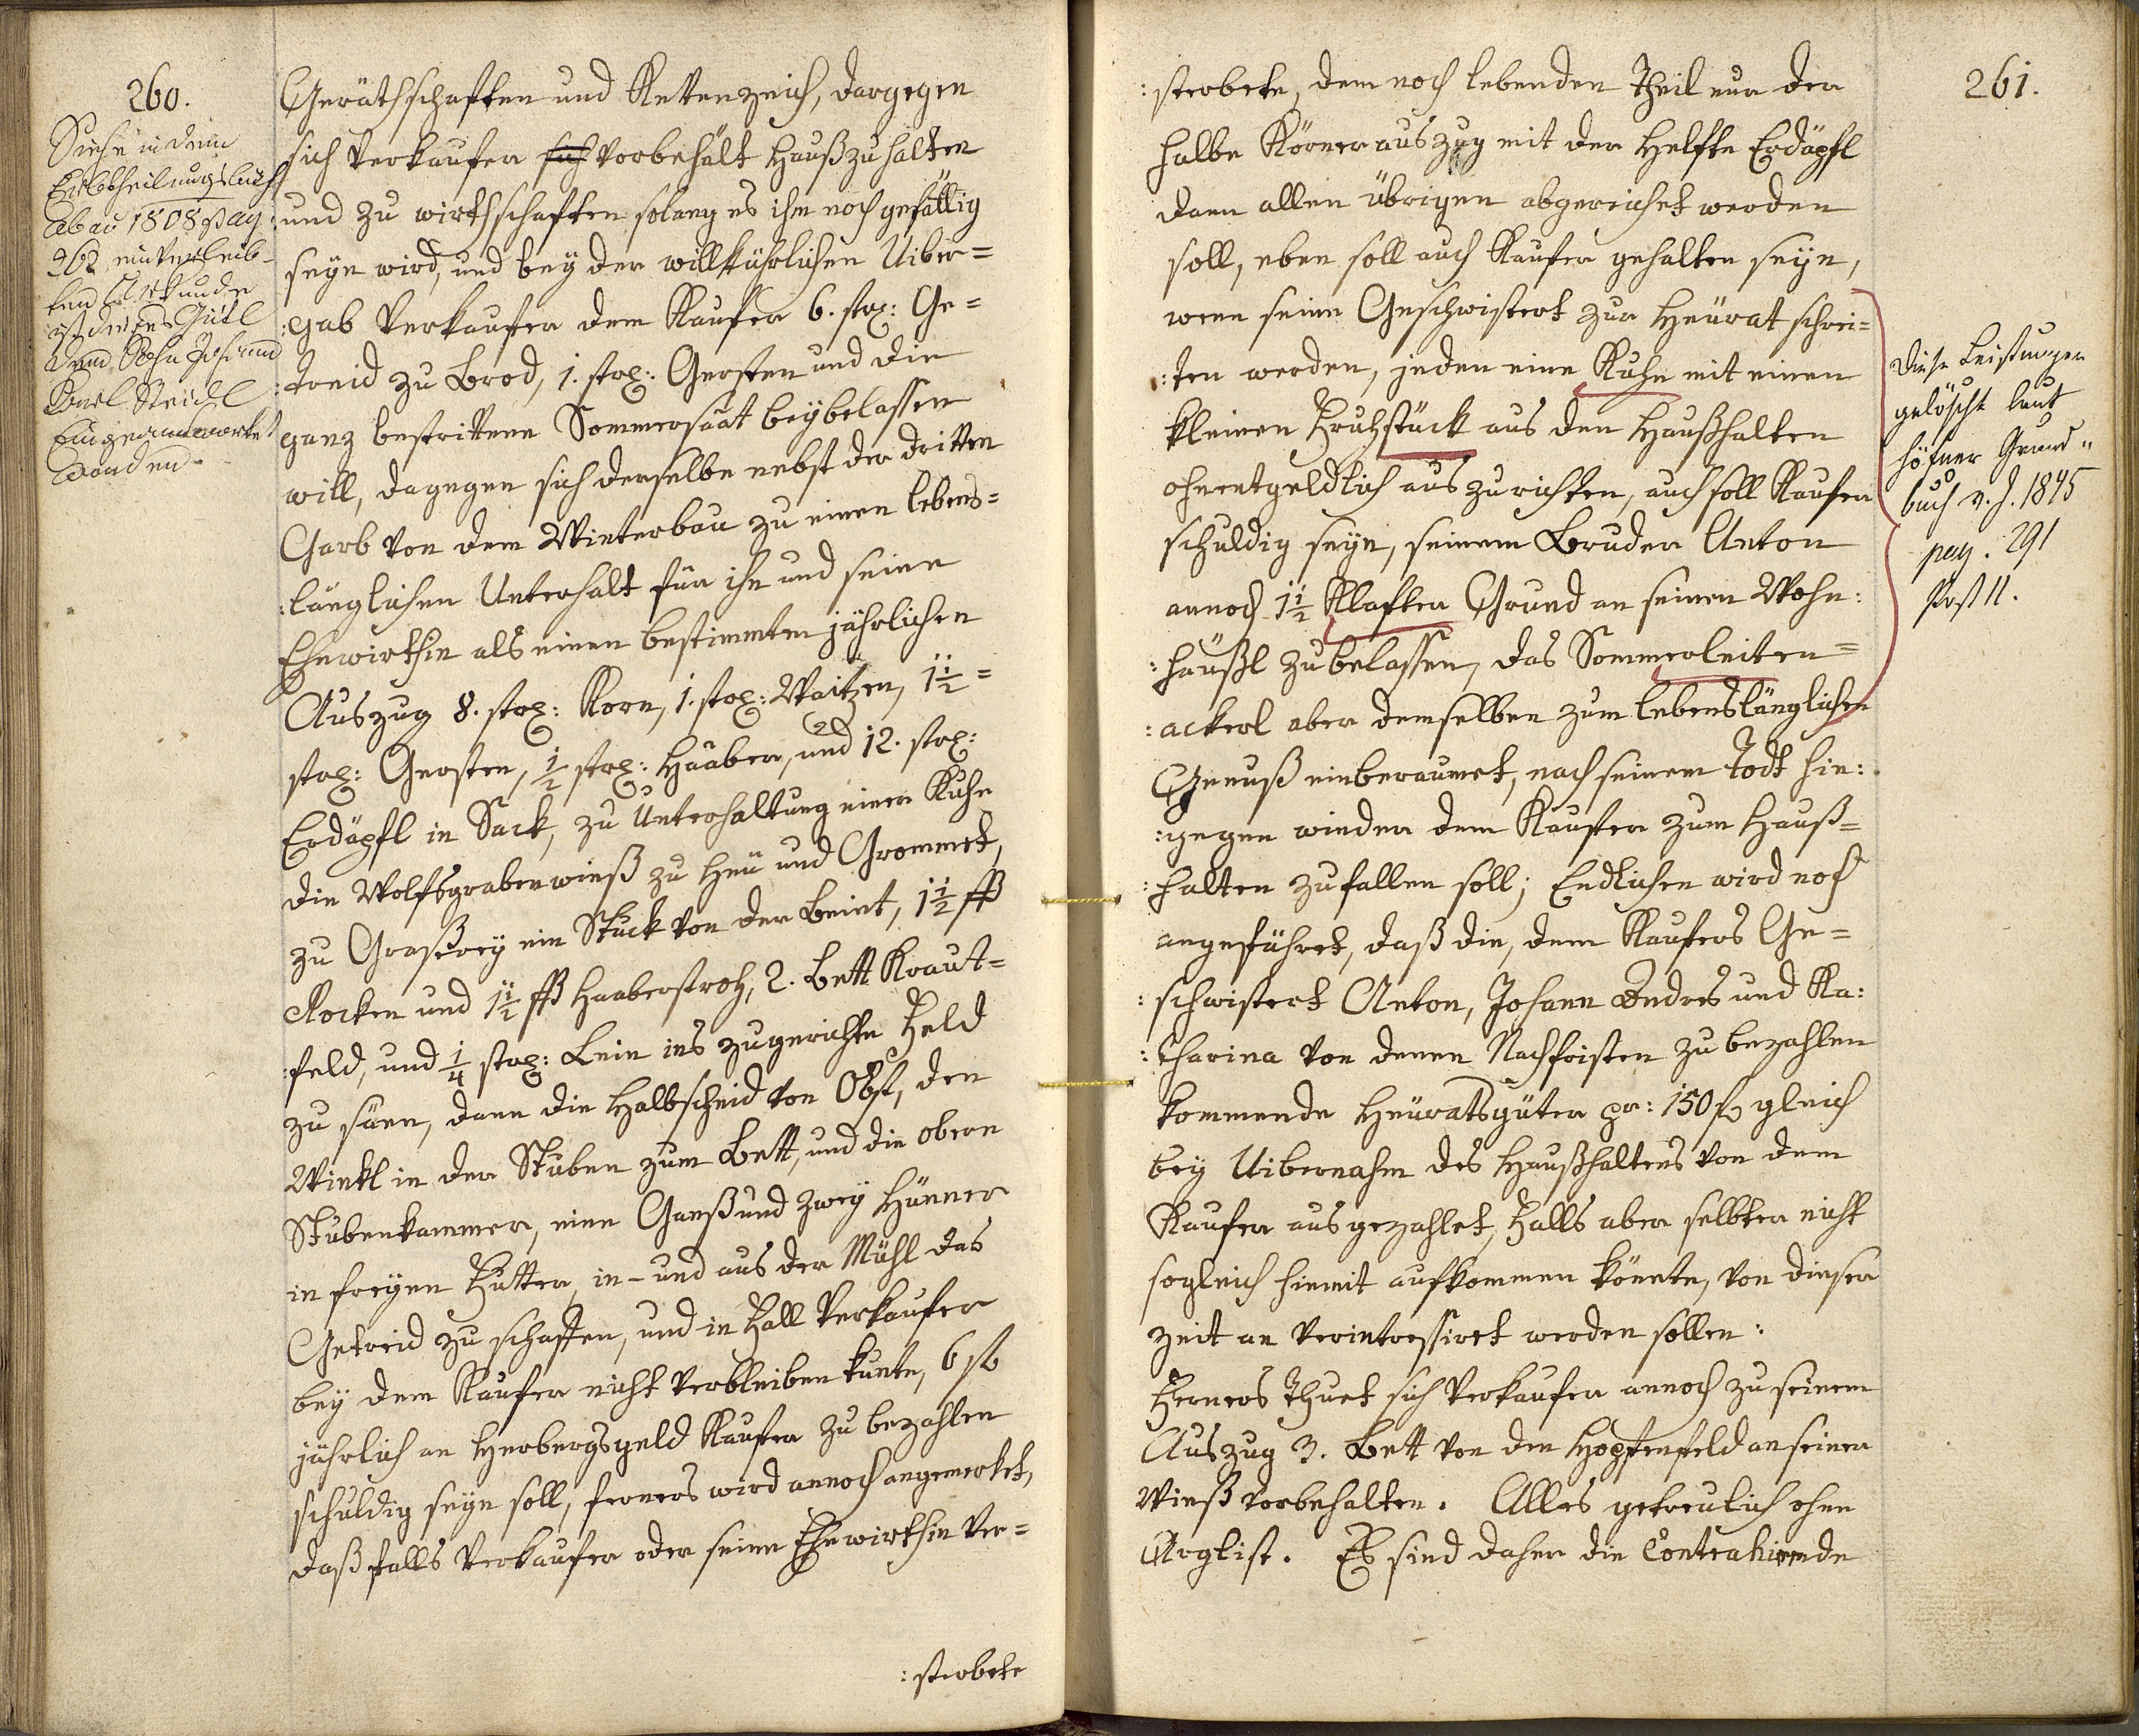 260.
Siehe in dem
Erbtheilungsbuch
ab ao 1808 pag
262 einverleib-
ten Urkunde
ist dieses Gütl
dem Sohn Johann
Karl Steidl
Eingeantwortet
worden.
Geräthschaften und Kettenzeich, dargegen
sich Verkaufer sich vorbehält Haußzuhalten
und zu wirthschaften solang es ihm noch gefällig
seyn wird, und bey der willkührlichen Uiber=
:gab Verkaufer dem Kaufer 6. strg: Ge=
:treid zu Brod, 1. strg: Gersten und die
ganz bestrittene Sommersaat beybelassen
will, dagegen sich derselbe nebst der dritten
Garb von dem Winterbau zu einen lebens=
:länglichen Unterhalt für ihn und seine
Ehewirthin als einen bestimmten jährlichen
Auszug 8. strg: Korn, 1. strg: Waitzen, 1½=
strg: Gersten, ½ strg: Haaber, und 12. strg:
Erdäpfl in Sack, zu Unterhaltung einer Kuhe
die Wolfsgrabenwieß zu Heu und Grommet,
zu Graßerey ein Stuck von der Beint, 1½ ßß
Rocken und 1½ ßß Haaberstroh, 2. Bett Kraut=
:feld, und ¼ strg: Lein ins zugerichte Feld
zu säen, dann die Halbscheid von Obst, den
Winkl in der Stuben zum Bett, und die obere
Stubenkammer, eine Ganß und zwey Hünner
in freyen Futter, in- und aus der Mühl das
Getreid zu schaffen, und in Fall Verkaufer
bey dem Kaufer nicht verbleiben kunte, 6 fl
jährlich an Herbergsgeld Kaufer zu bezahlen
schuldig seyn soll, ferners wird annoch angemerket,
daß falls Verkaufer oder seine Ehewirthin ver=
:sterbete
261.
:sterbete, dem noch lebenden Theil nur der
halbe Körnerauszug mit der Helfte Erdäpfl
dann allen übrigen abgereichet werden
soll, eben soll auch Kaufer gehalten seyn,
wenn seine Geschwistert zur Heürat schrei=
:ten werden, jeden eine Kuhe mit einen
kleinen Fruhstück aus den Haußhalten
ohnentgeldlich auszurichten, auch soll Kaufer
schuldig seyn, seinem Bruder Anton
annoch 1½ Klafter Grund an seinen Wohn:
:häußl zubelassen, das Sommerleiten=
:ackerl aber demselben zum lebenslänglichen
Genuß einberaumet, nach seinem Todt hin:
:gegen wieder dem Kaufer zum Hauß=
:halten zufallen soll; Endlichen wird noch
angeführet, daß die, dem Kaufers Ge=
:schwistert Anton, Johann Andres und Ka:
:tharina von denen Nachfristen zu bezahlen
kommende Heüratsgüter pr: 150 fl gleich
bey Uibernahm des Haußhaltens von dem
Kaufer ausgezahlet, Falls aber selbter nicht
sogleich hiemit aufkommen könnte, von dieser
Zeit an verintressiret werden sollen:
Ferners thuet sich Verkaufer annoch zu seinem
Auszug 3. Bett von den Hopfenfeld an seiner
Wieß vorbehalten. Alles getreulich ohne
Arglist. Es sind daher die Contrahirende
Diese Leistungen
gelöscht laut
höfner Grund"
buch v. J. 1845
pag. 291
Post 11.